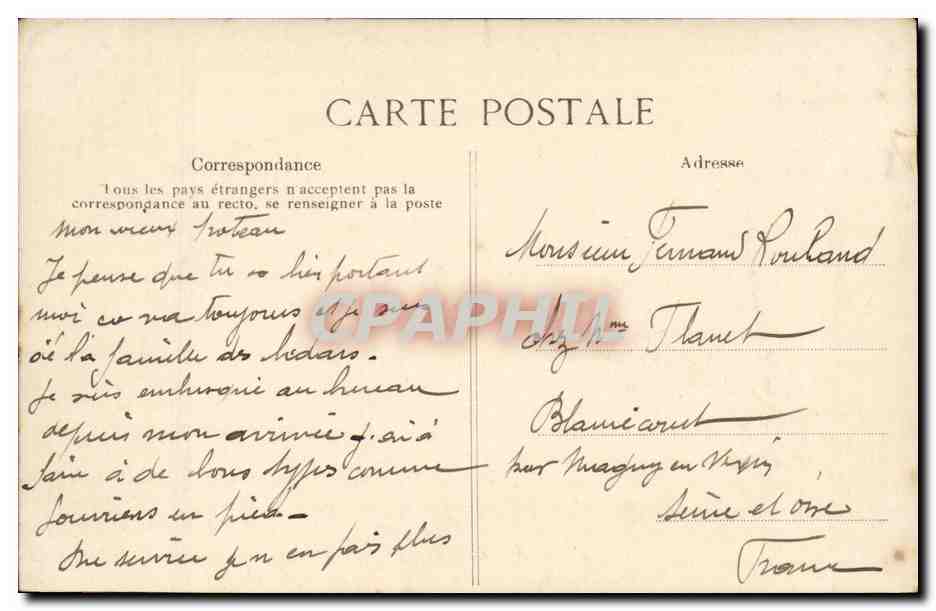 CARTE POSTALE
Correspondance
Tous les pays étrangers n'acceptent pas la
correspondance au recto, se renseigner à la poste
mon vieux poteau
Je pense que tu va bien portant
moi ca va toujours et je suis
à la famille des bedars.
Je suis embusqué au bureau
depuis mon arrivée j'ai à
faire à de bons types comme
fourriers en pied.
Une service je n en fais plus
Adresse
Monsieur Fernand Rouland
chez Mme Flauet
Blamécourt
par Magny en Vexin
Seine et Oise
France
CPAPHIL